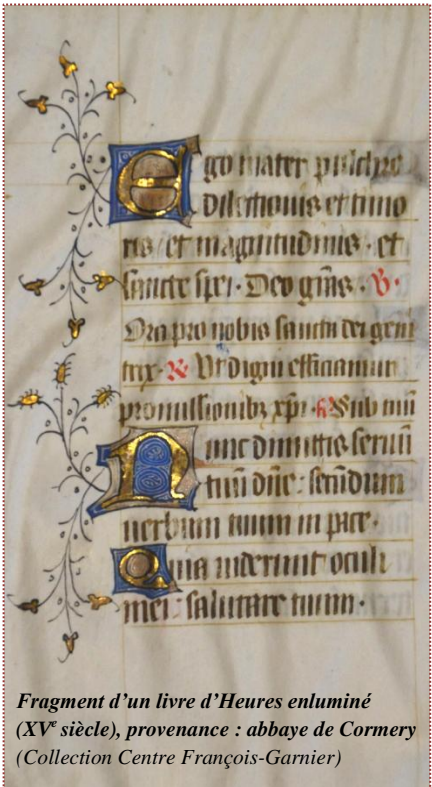 Ego mater pulchre
dilectionis et timo
ris et magnitudinis · et
sancte spei · Deo grās · ℣·
Ora pro nobis sancta dei geni
trix · ℟ Ut digni efficiamur
promissionibꝫ xp̄i · Sub tuū
Nunc dimittis seruū
tuū dn̄e : secūdum
uerbum tuum in pace ·
Quia uiderunt oculi
mei : salutare tuum ·
Fragment d’un livre d’Heures enluminé
(XVe siècle), provenance : abbaye de Cormery
(Collection Centre François-Garnier)